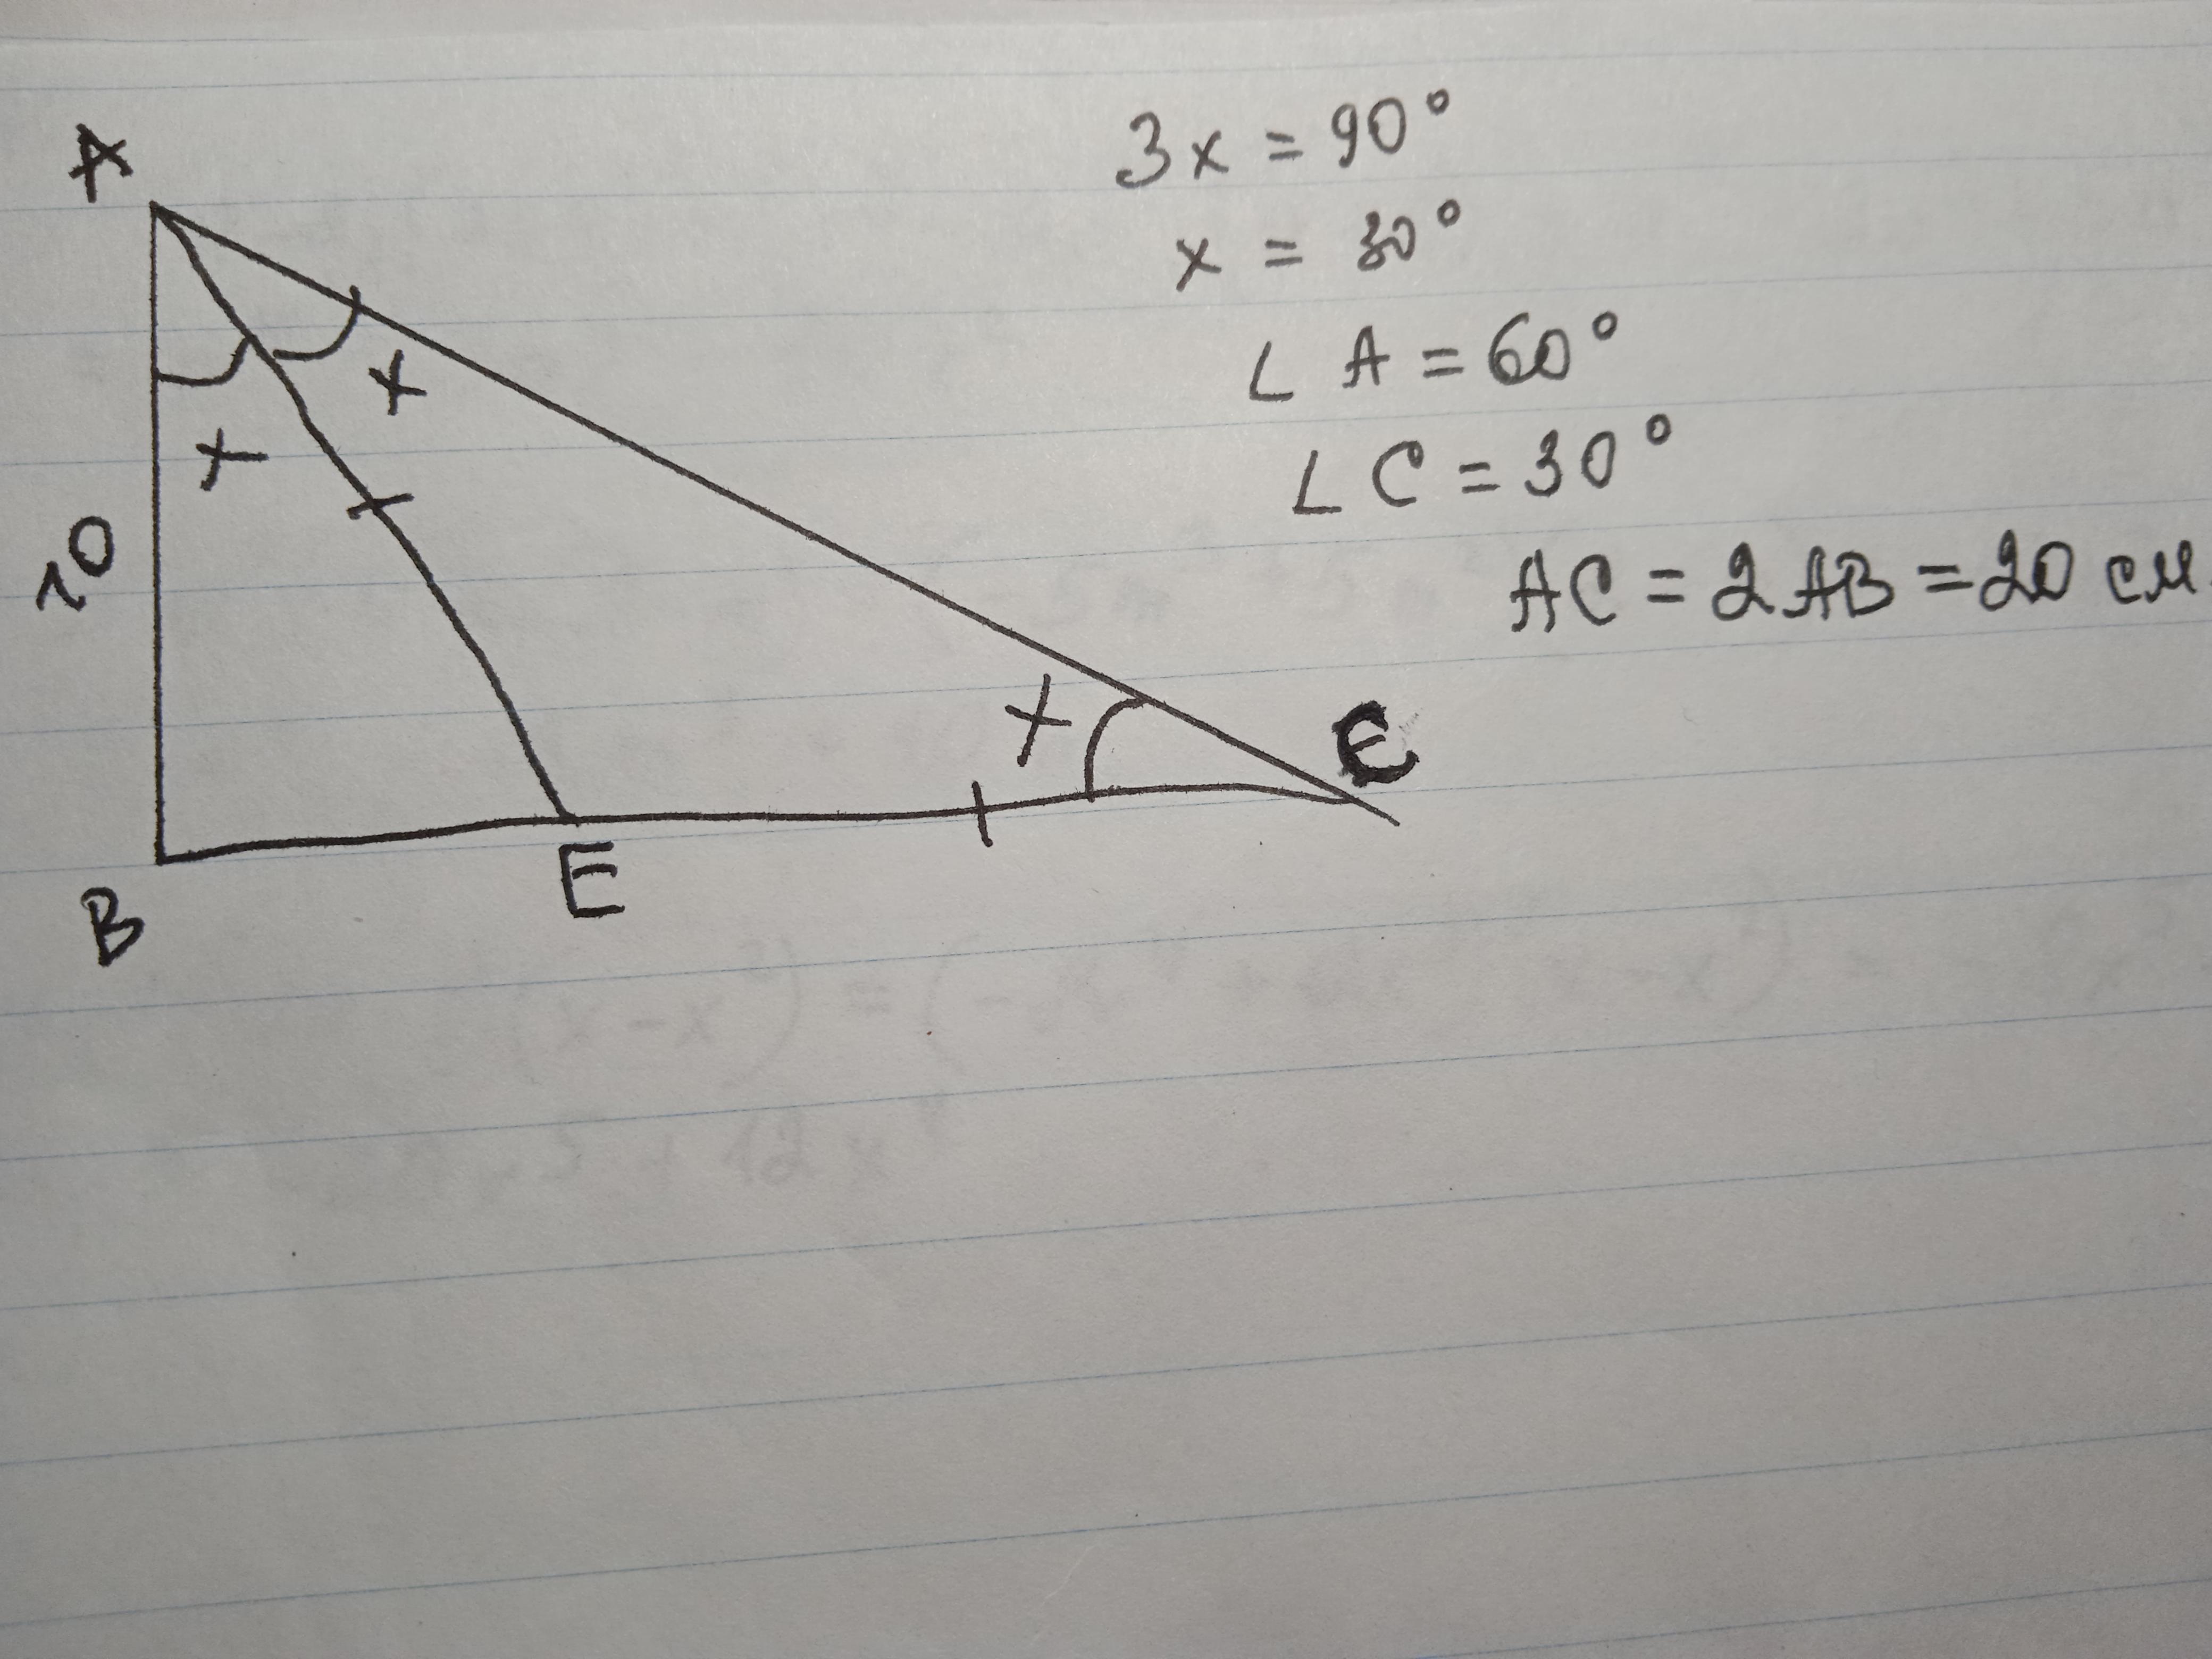 A
x
x
10
B
E
x
C
3x = 90°
x = 30°
∠ A = 60°
∠ C = 30°
AC = 2AB = 20 см.